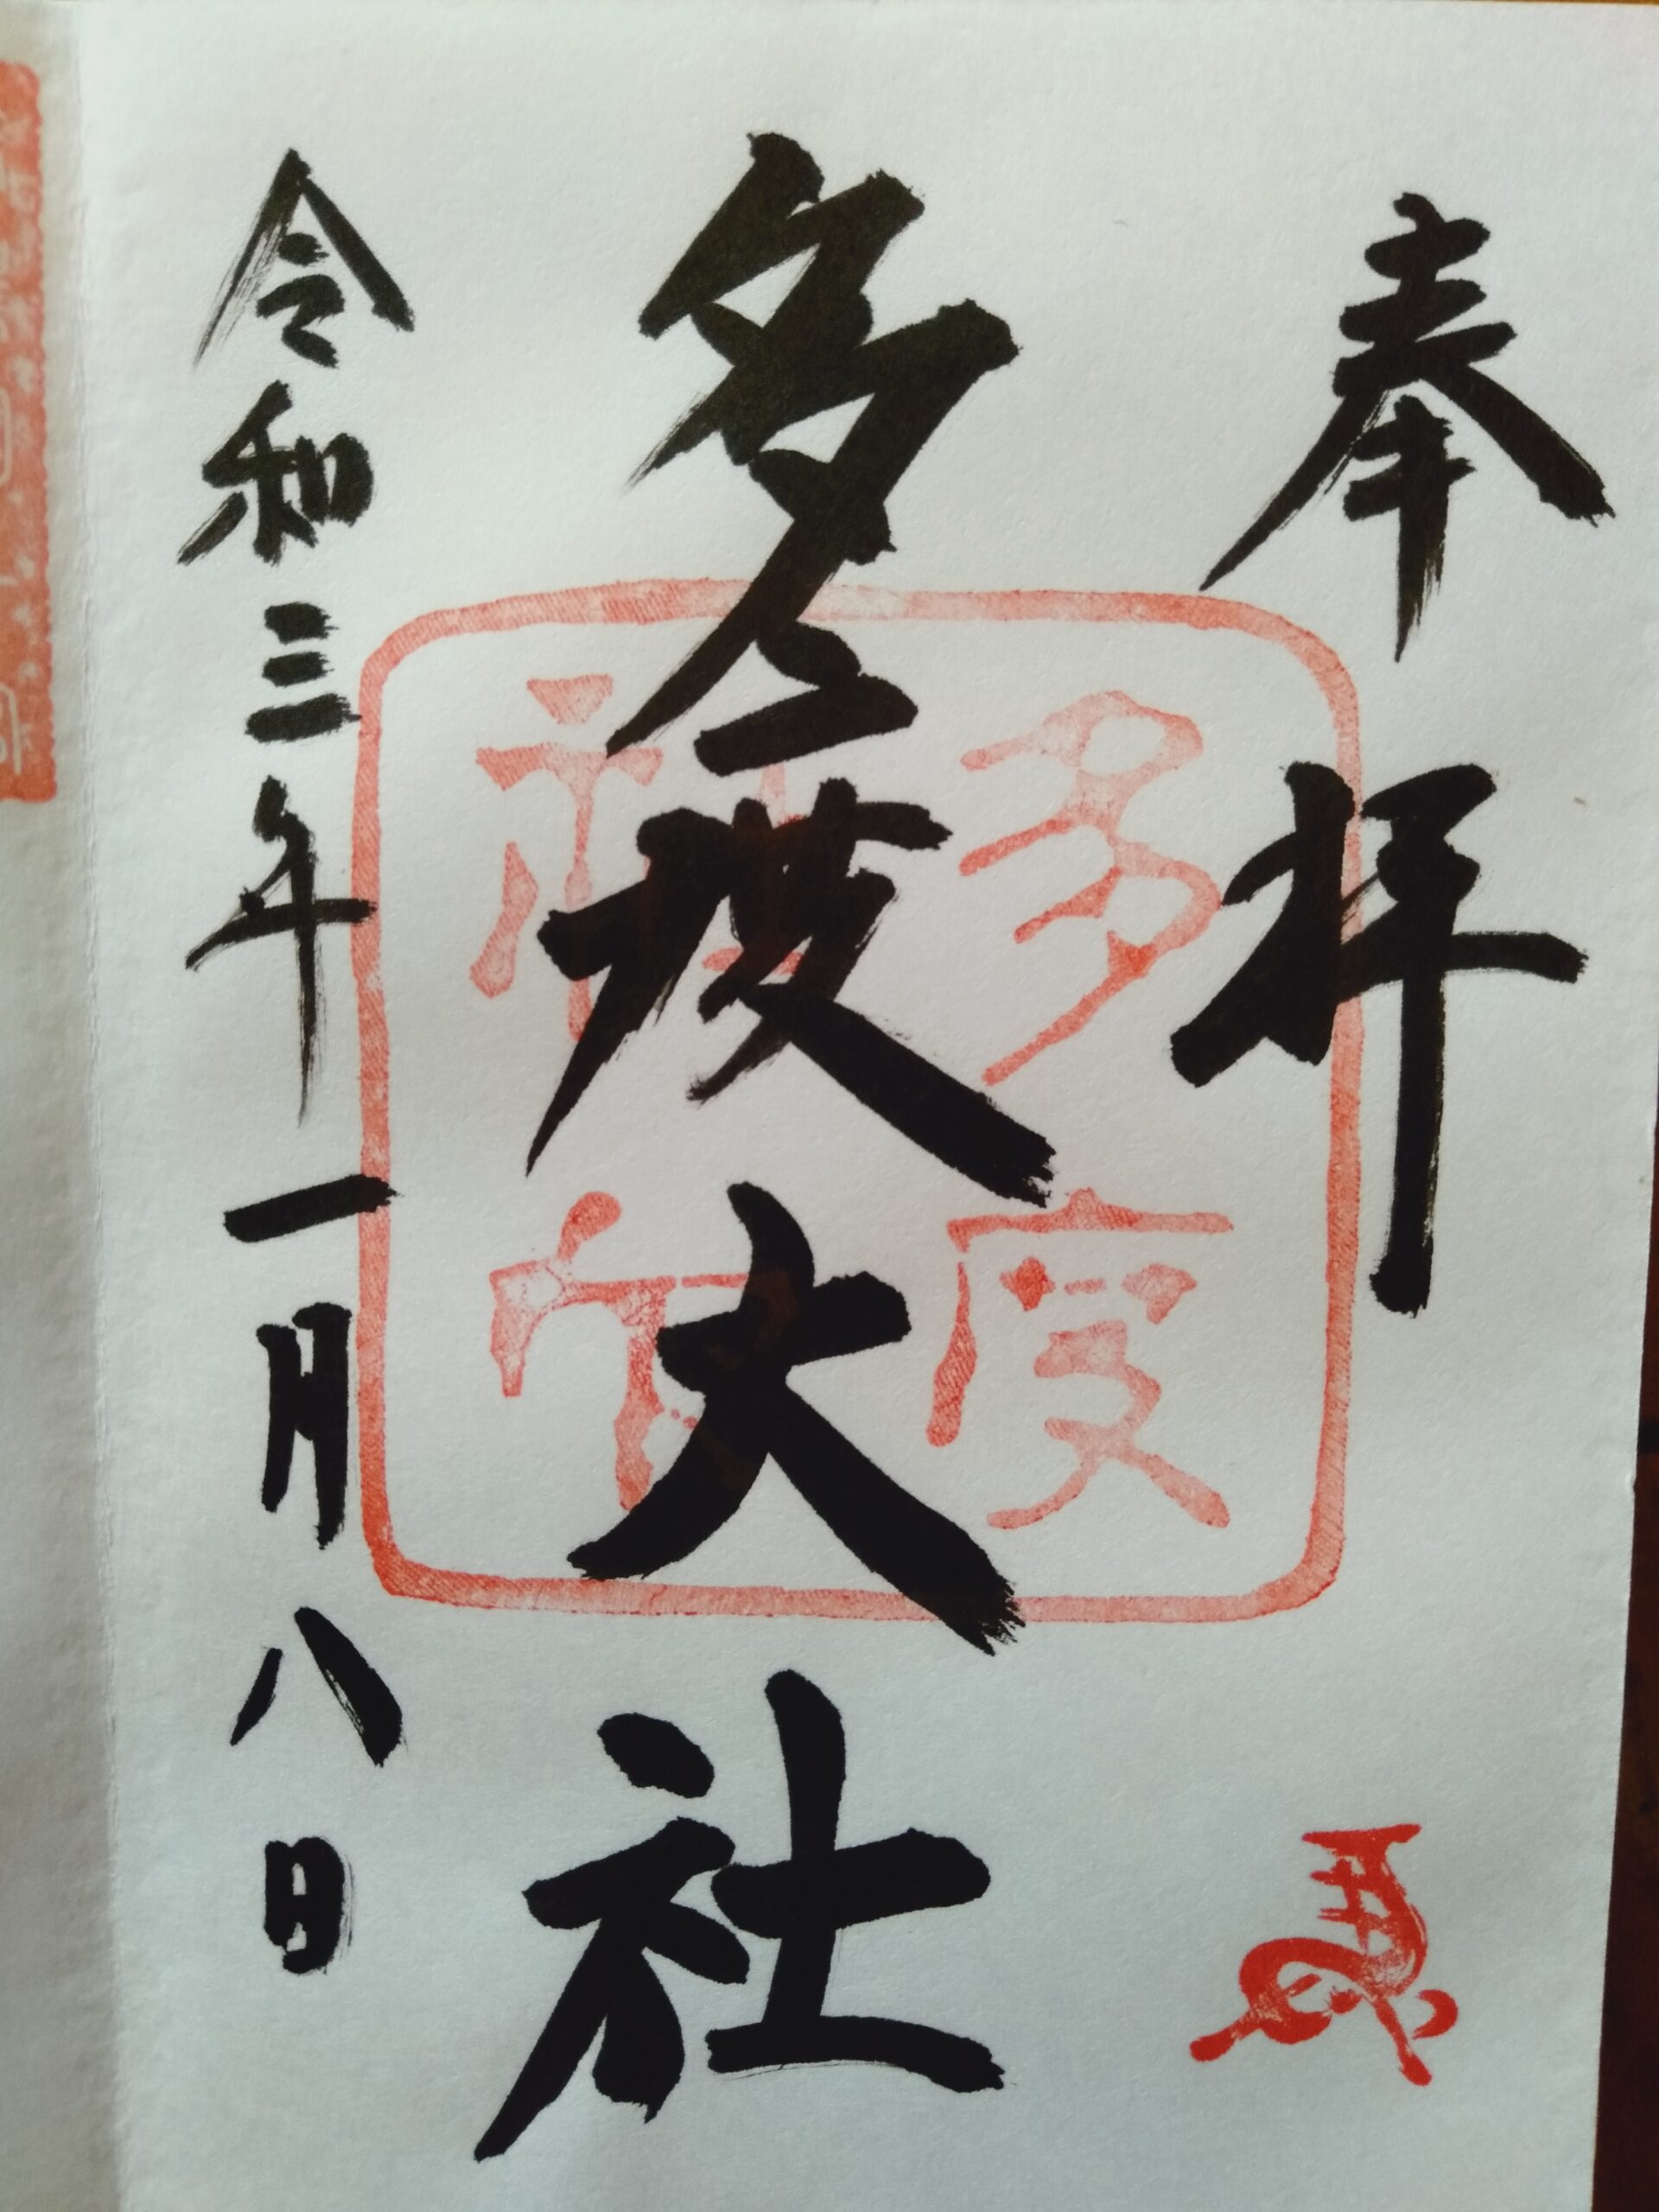 奉拝
多度大社
多度神宮
令和三年一月八日